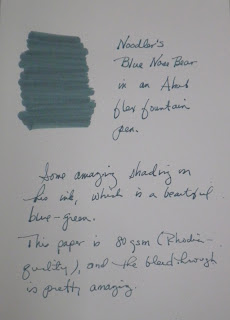 Noodler's
Blue Nose Bear
in an Ahab
flex fountain
pen.
Some amazing shading in
this ink, which is a beautiful
blue-green.
This paper is 80 gsm (Rhodia-
quality), and the bleedthrough
is pretty amazing.